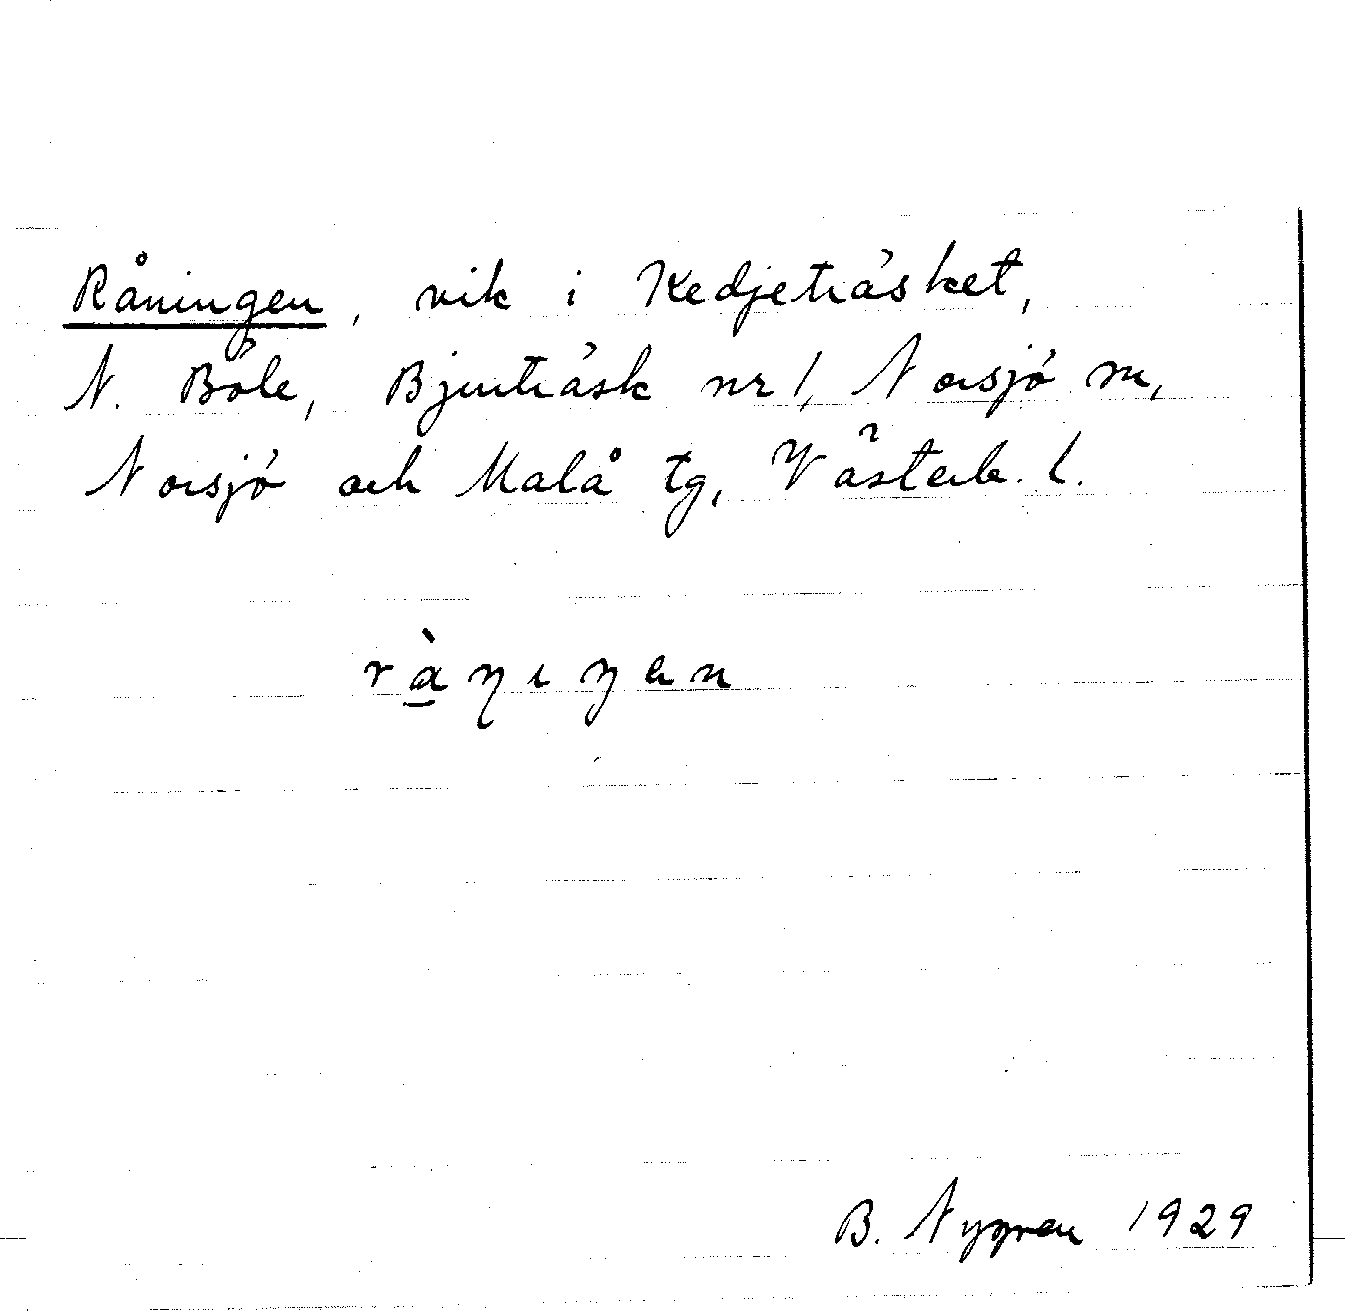 Råningen, vik i Kedjeträsket,
N. Böle, Bjurträsk nr 1, Norsjö sn,
Norsjö och Malå tg, Västerb. l.
B. Nygren 1929